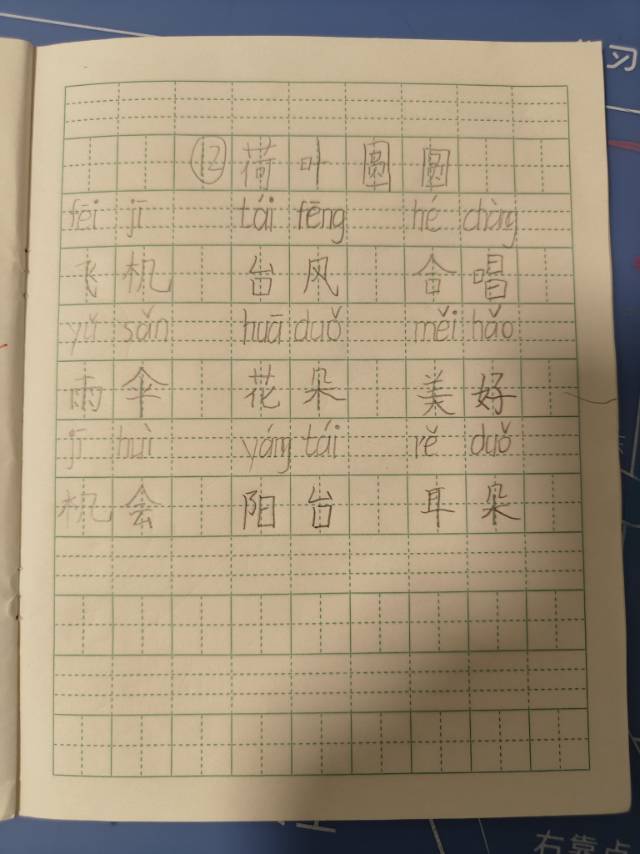 习
⑫荷叶圆圆
fēi jī tái fēng hé chàng
飞机 台风 合唱
yǔ sǎn huā duǒ měi hǎo
雨伞 花朵 美好
jī huì yáng tái rě duǒ
机会 阳台 耳朵
右靠点